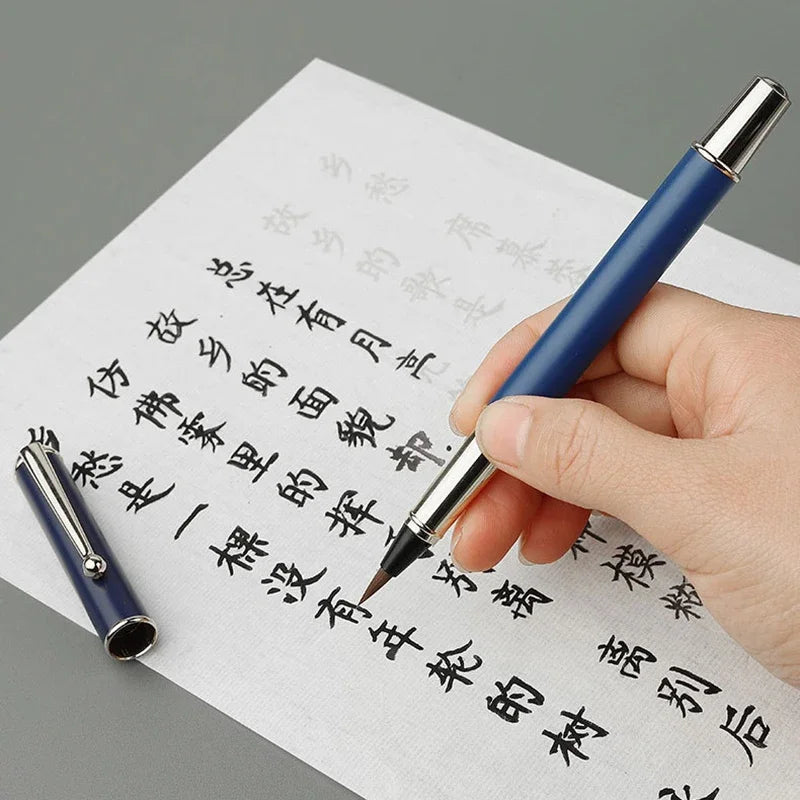 乡愁 席慕
故乡的歌是
总在有月亮
故乡的面貌却 种模糊
仿佛雾里的挥 别离
离别后
乡愁是一棵没有年轮的树